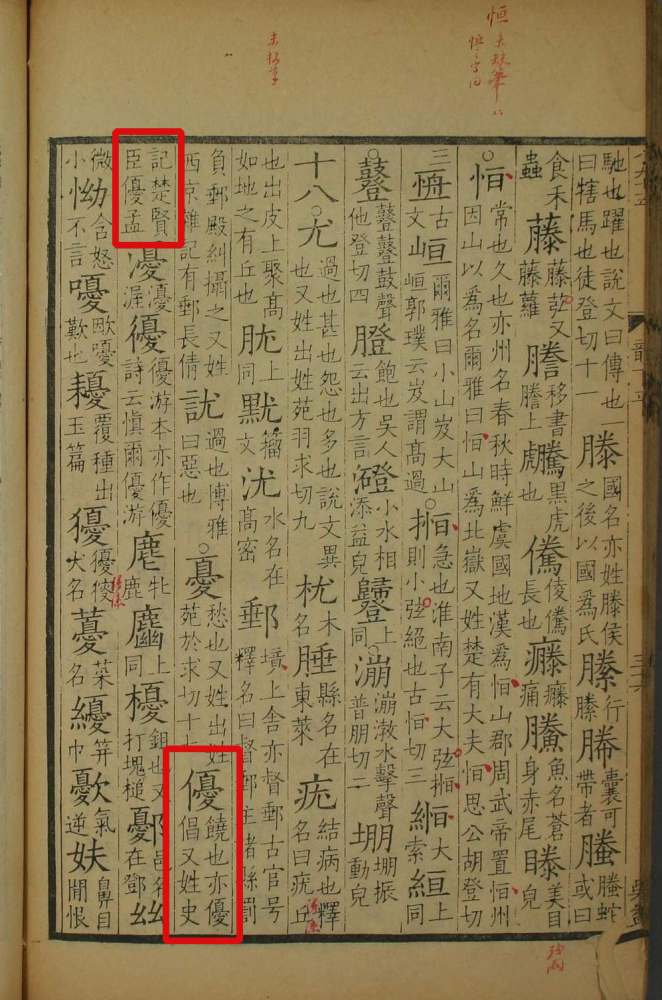 馳也躍也說文曰傳也一曰犗馬也徒登切十一滕國名亦姓滕侯之後以國爲氏縢行縢幐囊可帶者螣螣蛇或曰
食禾蟲藤藤苰又藤蘿謄移書謄上䖘黑虎也儯倰儯長也癳癳痛䲢魚名蒼身赤尾䁬美目皃
○恒常也久也亦州名春秋時鮮虞國地漢爲恒山郡周武帝置恒州因山以爲名爾雅曰恒山爲北嶽又姓楚有大夫恒思公胡登切
三𠄨古文峘爾雅曰小山岌大山峘郭璞云岌謂高過○搄急也淮南子云大弦搄則小弦絕也古恒切三緪大索絙上同
○鼟鼟鼟鼓聲他登切四膯飽也吳人云出方言澄小水相添益皃上同○漰漰渤水擊聲普朋切二堋堋振動皃
十八○尤過也甚也怨也多也說文異也又姓出姓苑羽求切九木名縣名在東萊疣結病也釋名曰疣丘
也出皮上聚高如地之有丘也肬上同默籀文沋水名在高密郵境上舍亦督郵古官号釋名曰督郵主諸縣罰
負郵殿糾攝之又姓西京雜記有郵長倩訧過也博雅曰惡也○憂愁也又姓出姓苑於求切十七優饒也亦優倡又姓史
記楚賢臣優孟瀀瀀渥優游本亦作優詩云慎爾優游麀牝鹿上同櫌鉏也又打塊槌鄾邑名在鄧丝
微小怮含怒不言嚘歐嚘歎也耰覆種出玉篇獶犬名菜名纋笄巾氣逆妋鼻目閒恨